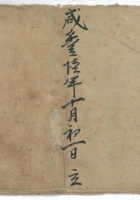 咸豐陸年十月初一日立